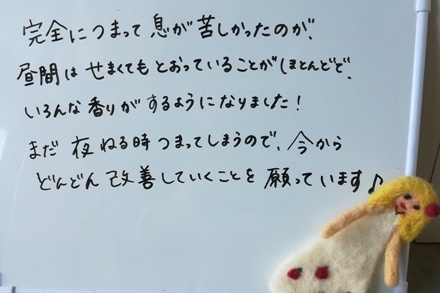 完全につまって息が苦しかったのが、
昼間はせまくてもとおっていることがほとんどで、
いろんな香りがするようになりました!
まだ夜ねる時つまってしまうので、今から
どんどん改善していくことを願っています♪